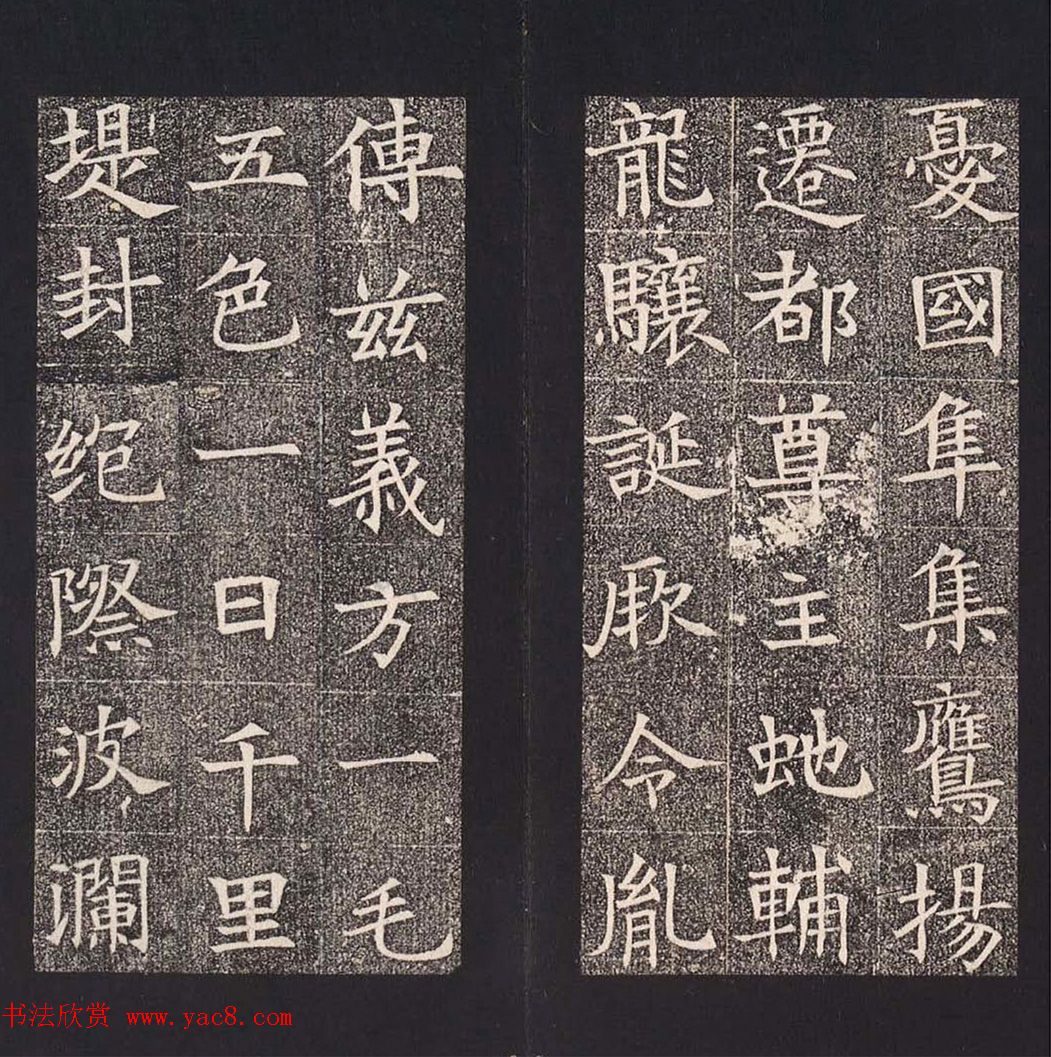 憂國隼集鷹揚
遷都尊主虵輔
龍驤誕厥令胤
傳茲義方一毛
五色一日千里
堤封絶際波瀾
书法欣赏 www.yac8.com